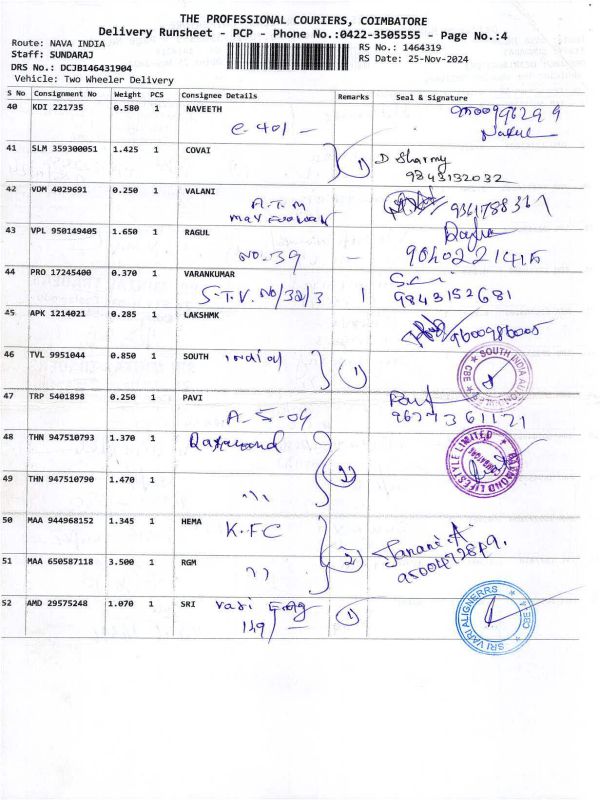 THE PROFESSIONAL COURIERS, COIMBATORE
Delivery Runsheet - PCP - Phone No.:0422-3505555 - Page No.:4
Route: NAVA INDIA
Staff: SUNDARAJ
DRS No.: DCJB146431904
Vehicle: Two Wheeler Delivery
RS No.: 1464319
RS Date: 25-Nov-2024
S No Consignment No Weight PCS Consignee Details Remarks Seal & Signature
40 KDI 221735 0.580 1 NAVEETH
e-401 -
41 SLM 359300051 1.425 1 COVAI 1 D Sharmy
9843132032
42 VDM 4029691 0.250 1 VALANI
A.T.M
43 VPL 950149405 1.650 1 RAGUL
NO.39 -
44 PRO 17245400 0.370 1 VARANKUMAR
S.T.V. NO/32/3 1 9843152681
45 APK 1214021 0.285 1 LAKSHMK
9600986005
46 TVL 9951044 0.850 1 SOUTH India 1
SOUTH INDIA
CBE
47 TRP 5401898 0.250 1 PAVI
A-5-04
48 THN 947510793 1.370 1
2
DIAMOND LIFESTYLE LIMITED
49 THN 947510790 1.470 1
50 MAA 944968152 1.345 1 HEMA
K.F.C
2
Janani.A
51 MAA 650587118 3.500 1 RGM
52 AMD 29575248 1.070 1 SRI Vari Eng 1
149/-
SRI VARI ALIGNERRS
CBE